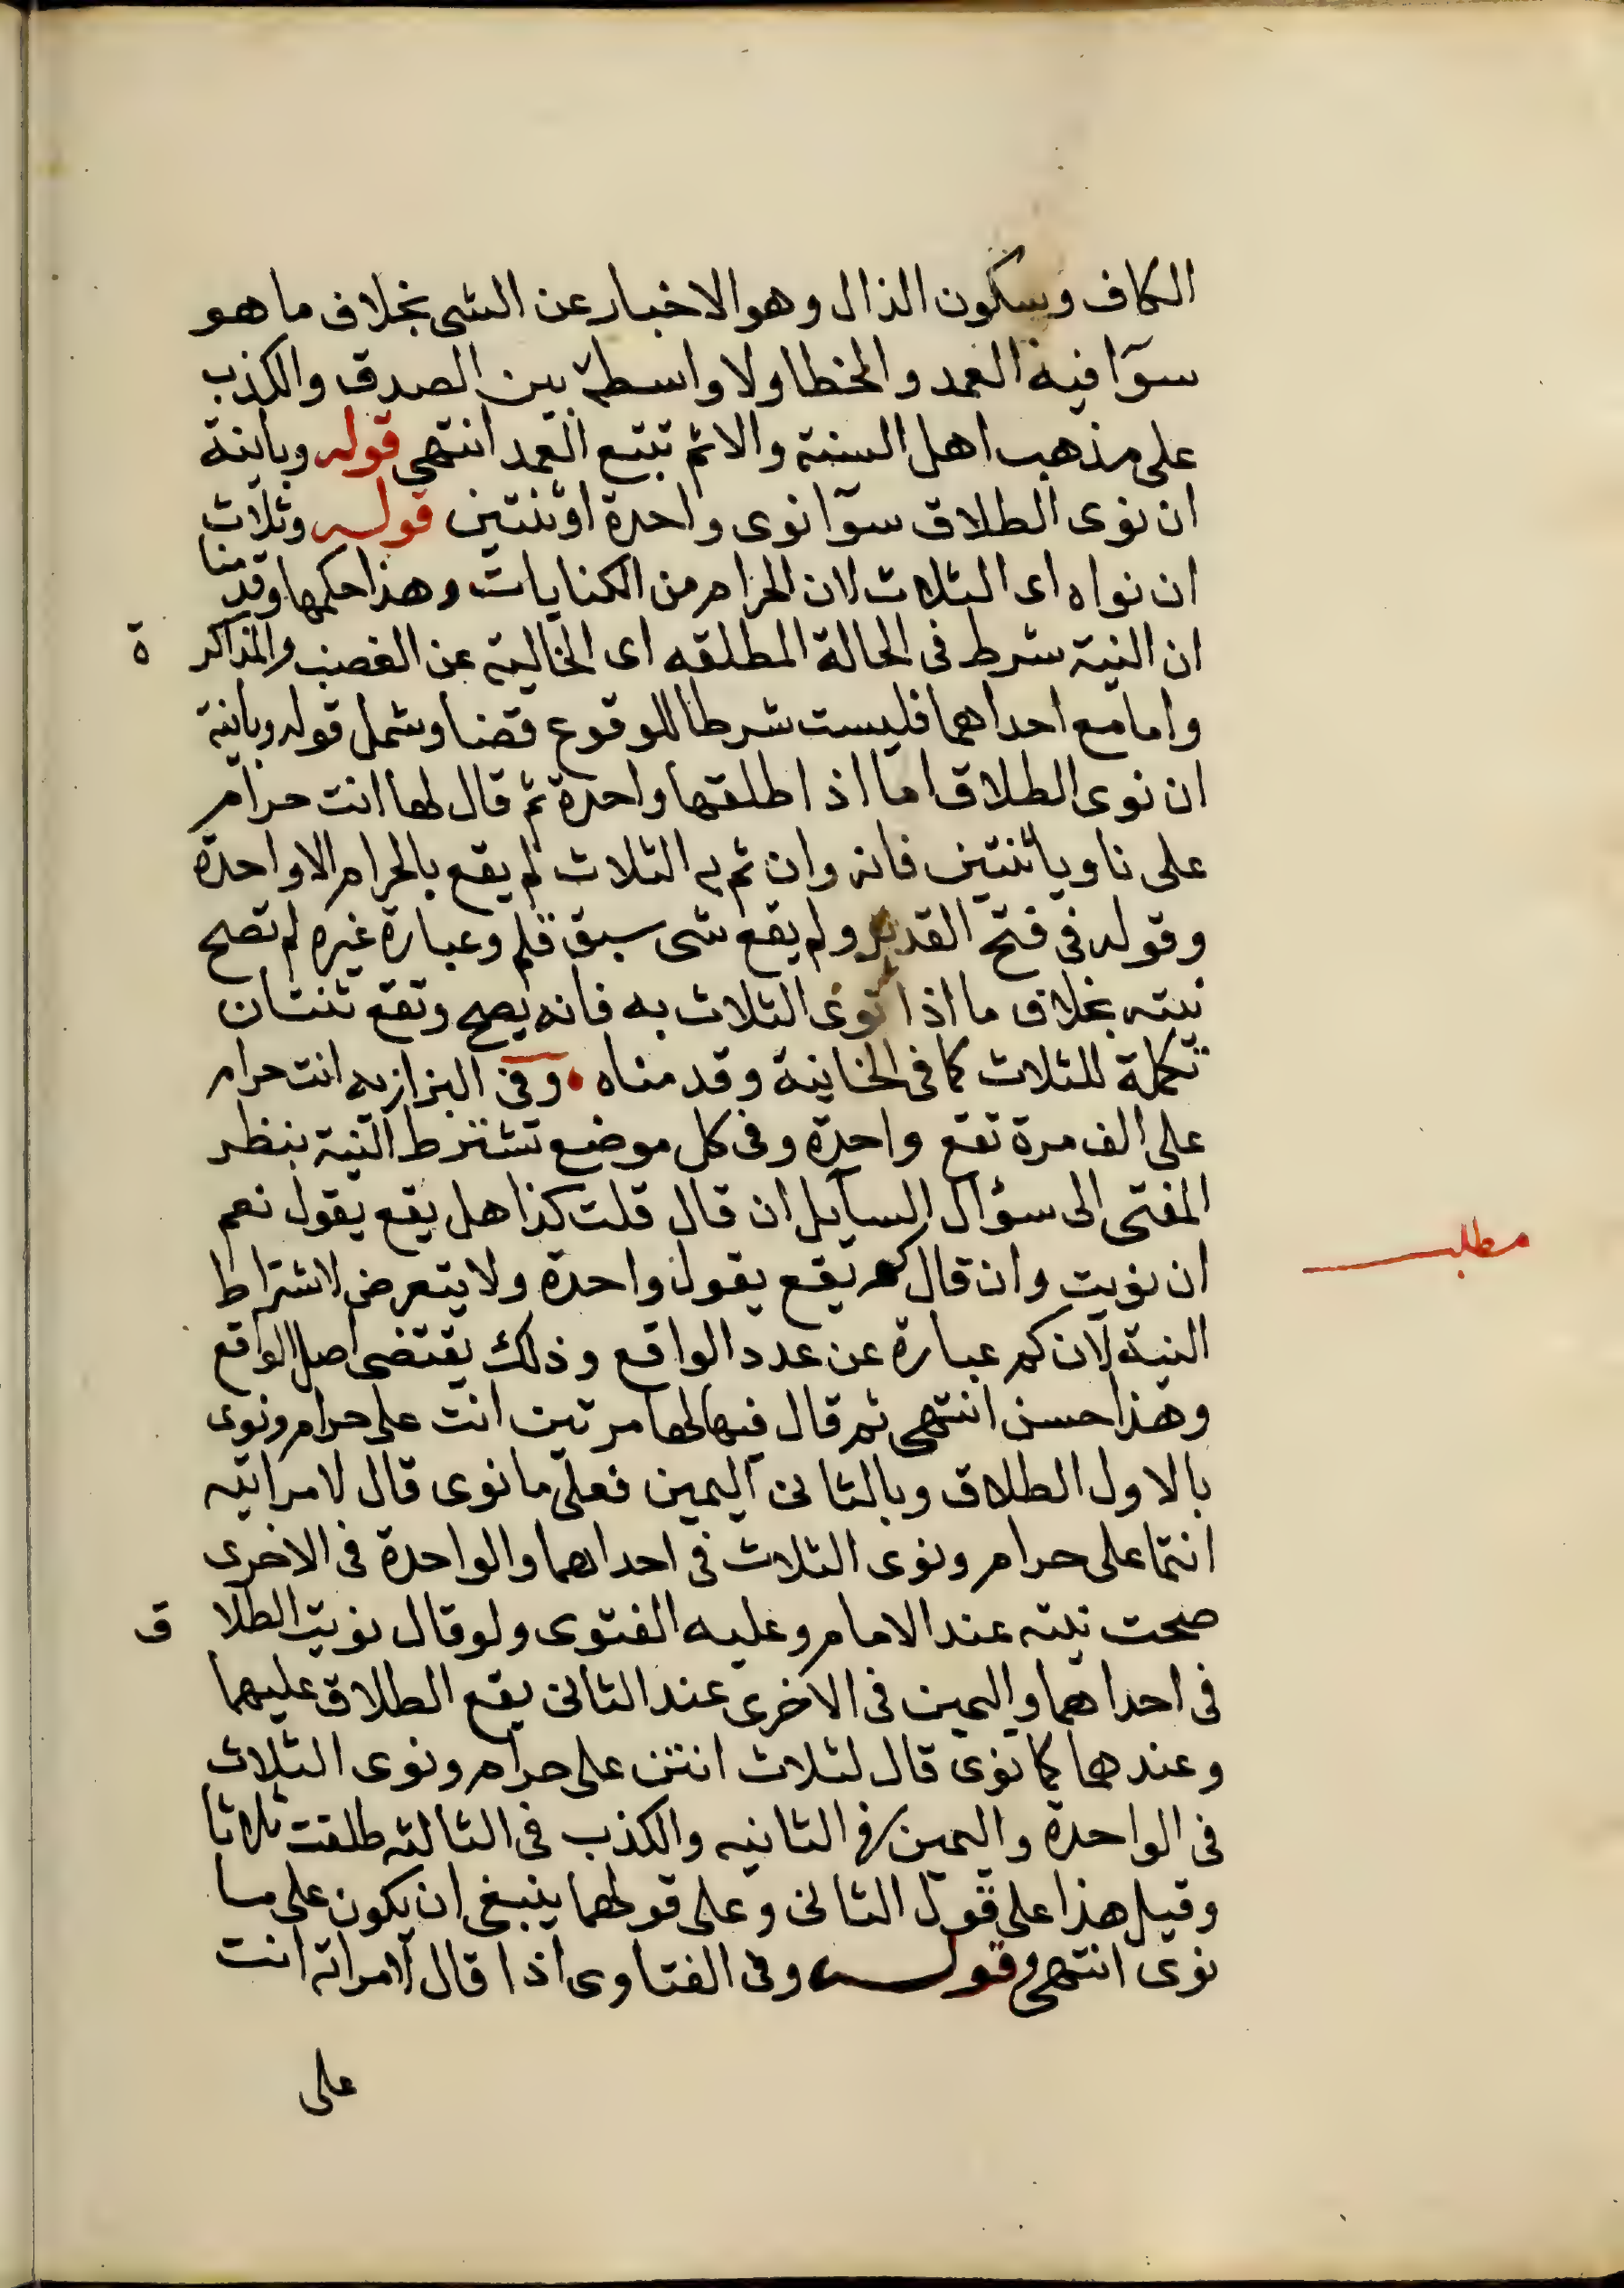 الكاف وسكون الذال وهو الاخبار عن الشى بخلاف ما هو
سوآ فيه العمد والخطا ولا واسطة بين الصدق والكذب
على مذهب اهل السنة والاثم تبتع العمد انتهى قوله وباينة
ان نوى الطلاق سوآ نوى واحدة او ثنتين قوله وثلاث
ان نواه اى الثلاث لان الحرام من الكنايات وهذا حكمها وقدمنا
ان النية شرط فى الحالة المطلقه اى الخالية عن الغضب والمذاكرة
واما مع احداهما فليست شرطا للوقوع قضا وشمل قوله وباينة
ان نوى الطلاق اما اذا طلقها واحدة ثم قال لها انت حرام
على ناويا ثنتين فانه وان تم به الثلاث لم يقع بالحرام الا واحدة
وقوله فى فتح القدير ولم يقع شى سبق قلم وعبارة غيره لم تصح
نيته بخلاف ما اذا نوى الثلاث به فانه يصح وتقع ثنتان
تكملة للثلاث كما فى الخانية وقدمناه وفى البزازيه انت حرام
على الف مرة تقع واحدة وفى كل موضع تشترط النية ينظر
المفتى الى سؤال السايل ان قال قلت كذا هل يقع يقول نعم
مطلب
ان نويت وان قال كم يقع يقول واحدة ولا يتعرض لاشتراط
النية لان كم عبارة عن عدد الواقع وذلك يقتضى اصل الواقع
وهذا حسن انتهى ثم قال فيها لها مرتين انت على حرام ونوى
بالاول الطلاق وبالثانى اليمين فعلى ما نوى قال لامراتيه
انتما على حرام ونوى الثلاث فى احداهما والواحدة فى الاخرى
صحت نيته عند الامام وعليه الفتوى ولو قال نويت الطلاق
فى احداهما واليمين فى الاخرى عند الثانى يقع الطلاق عليهما
وعندهما كما نوى قال لثلاث انتن على حرام ونوى الثلاث
فى الواحدة واليمين فى الثانيه والكذب فى الثالثه طلقت ثلاثا
وقيل هذا على قول الثانى وعلى قولهما ينبغى ان يكون على ما
نوى انتهى قوله وفى الفتاوى اذا قال لامراته انت
على